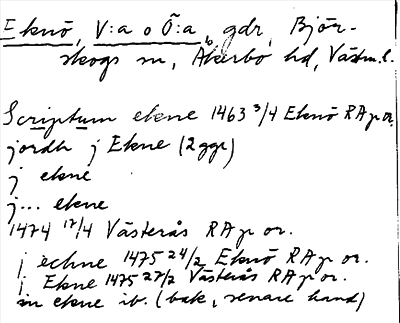 Eknö, V:a o Ö:a, gdr, Björ-
skogs sn, Åkerbo hd, Västm.l.
Scriptum ekne 1463 3/4 Eknö RAp or.
jordh j Ekne (2 ggr)
j ekne
j... ekne
1474 17/4 Västerås RAp or.
j echne 1475 24/2 Eknö RAp or.
j Ekne 1475 27/2 Västerås RAp or.
in ekne ib. (bak, senare hand)